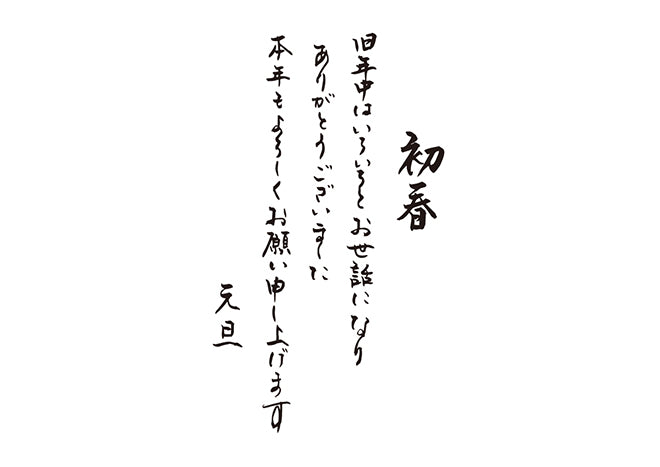 初春
旧年中はいろいろとお世話になり
ありがとうございました
本年もよろしくお願い申し上げます
元旦